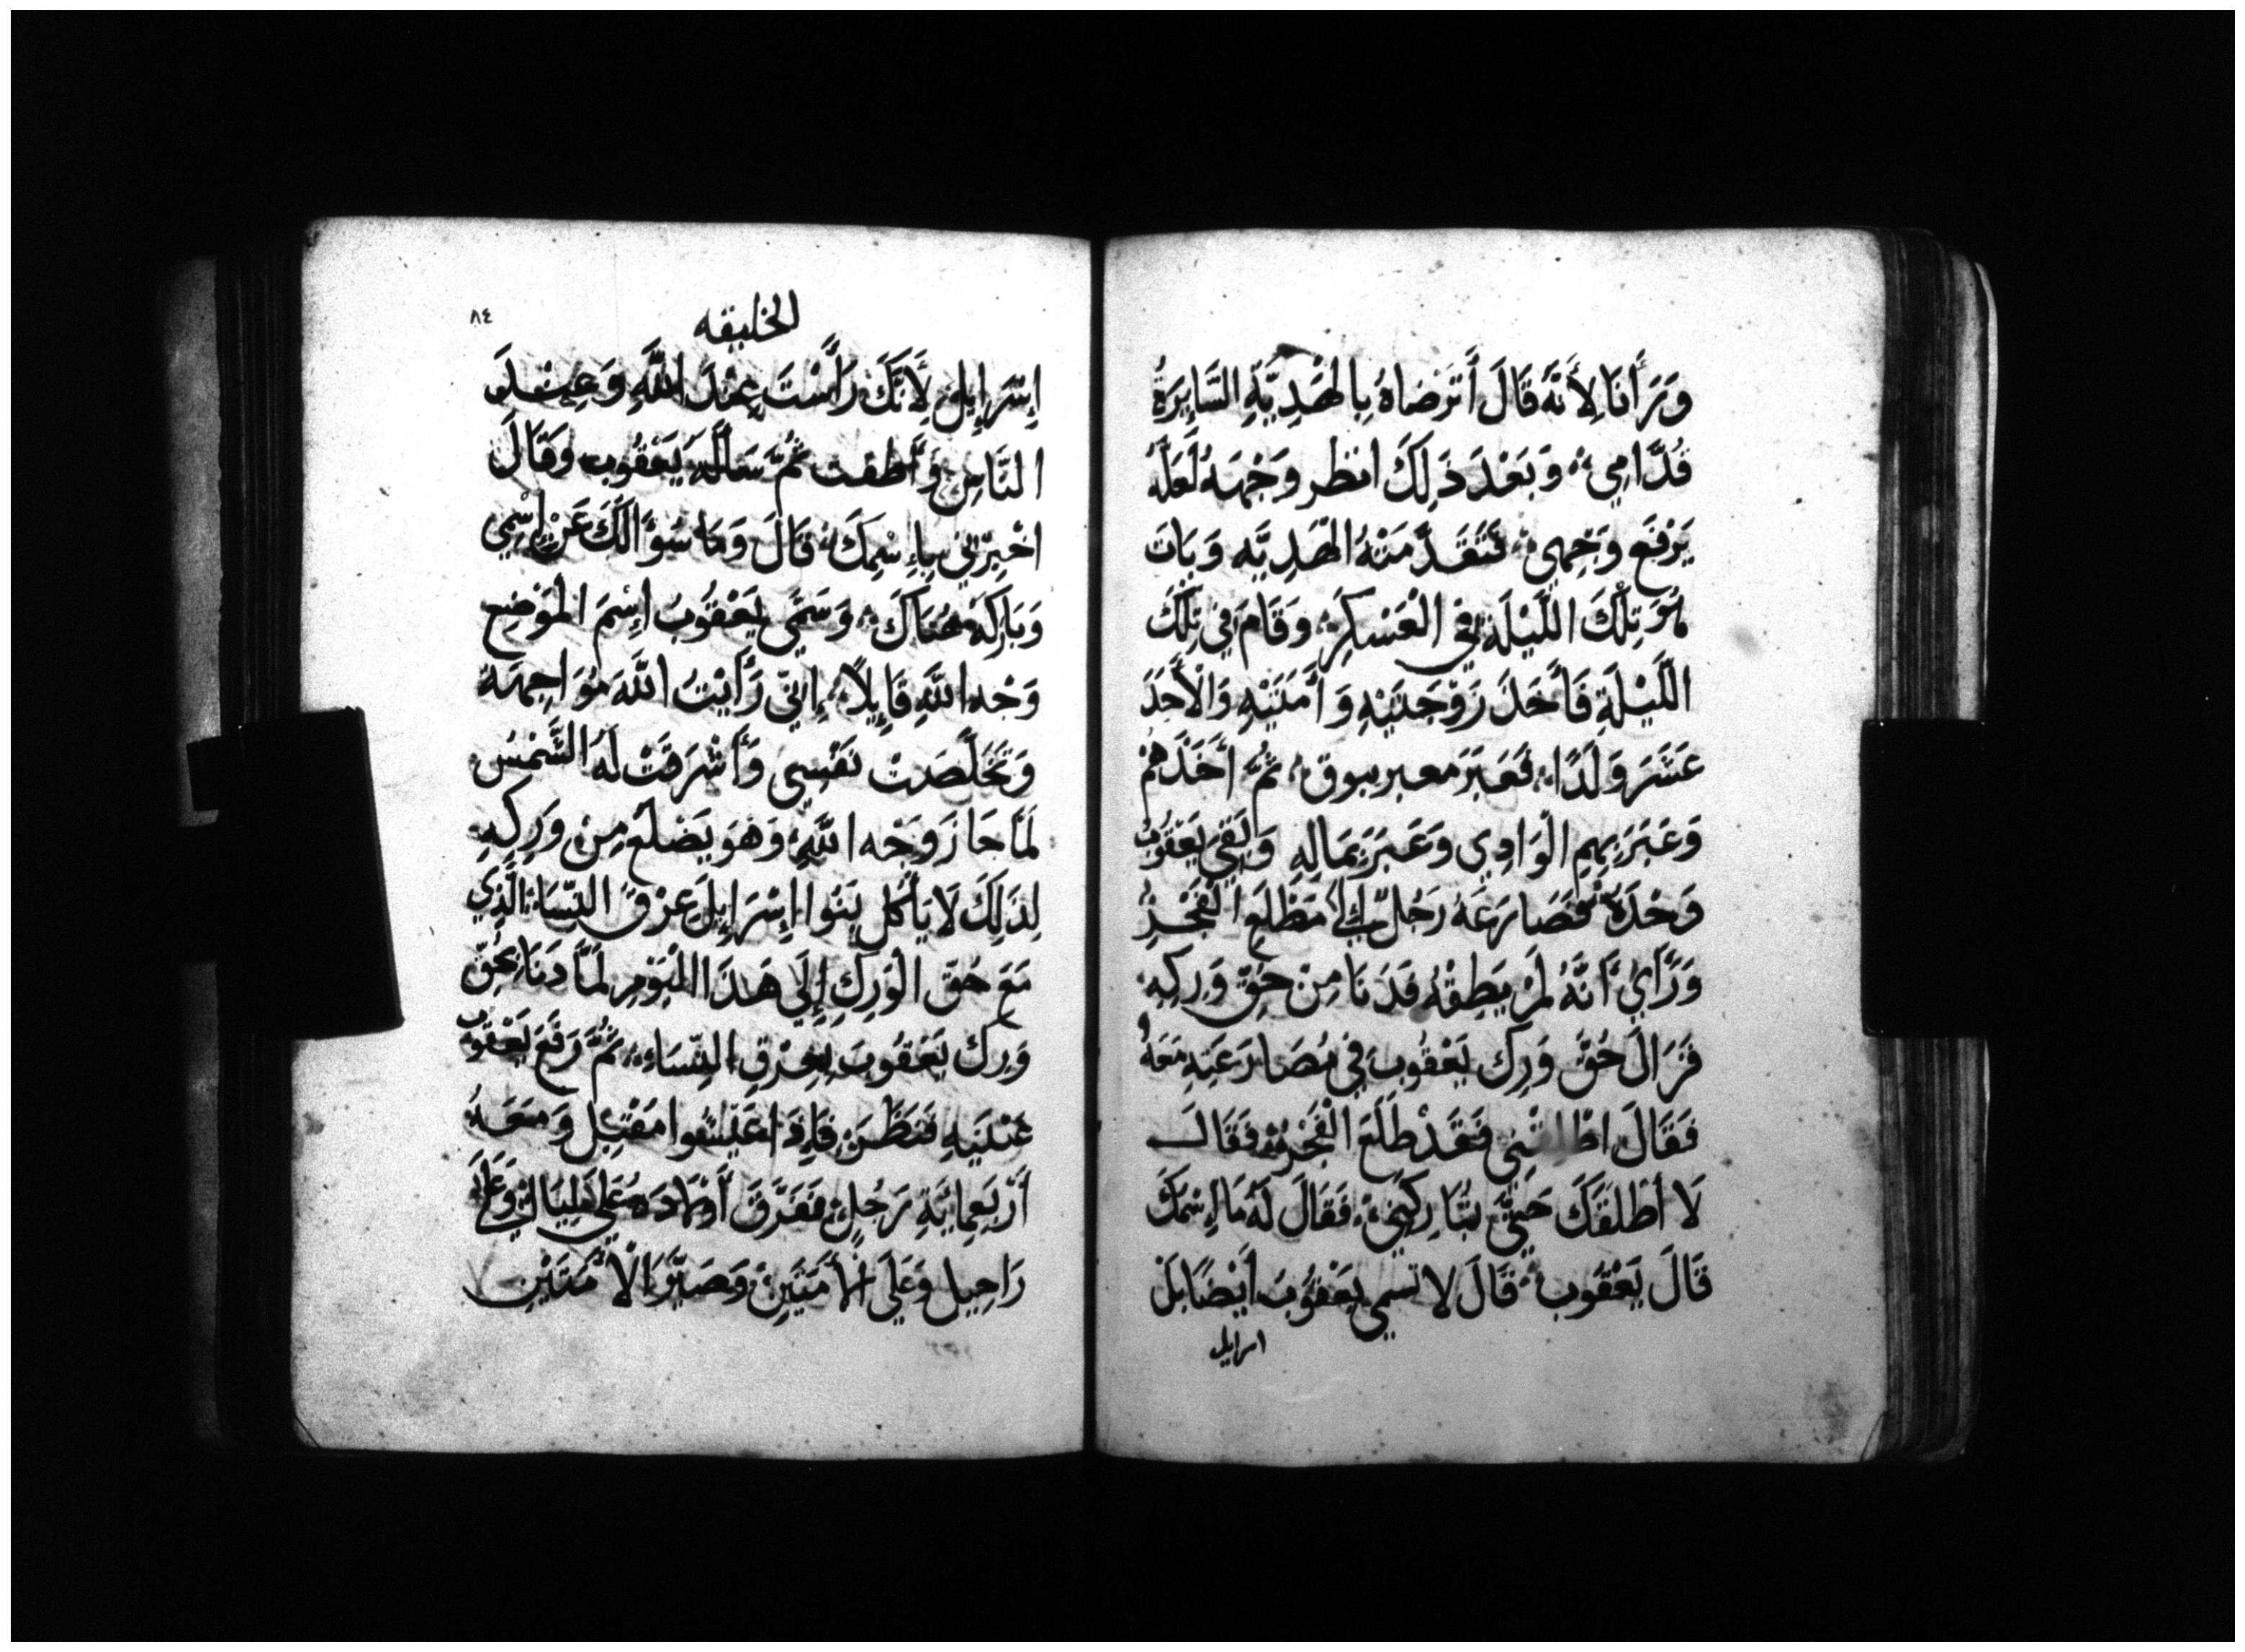 وَرَأَنَا لِأَنَّهُ قَالَ أَتَرَضَاهُ بِالهَدِيَّةِ السَّايِرَةُ
قُدَّامِي وَبَعْدَ ذَلِكَ انظر وَجْهَهُ لَعَلَّهُ
يَرْفَع وَجْهِي فَتَقَدَّمَتْهُ الهَدِيَّه وَبَاتَ
هُوَ تِلْكَ اللَّيْلَة فِي الْعَسْكَرِ وَقَامَ فِي تِلْكَ
اللَّيْلَةِ فَأَخَذَ زَوْجَتَيْهِ وَأَمَتَيْهِ وَالْأَحَدَ
عَشَرَ وَلَدًا فَعَبَرَ معبر يبوق ثُمَّ أَخَذَهُمْ
وَعَبَرَ بِهِمِ الْوَادِي وَعَبَرَ بِمَالِهِ وَبَقِيَ يَعْقُوبُ
وَحْدَهُ فَصَارَعَهُ رَجُلٌ إلى مَطْلَعِ الفَجْرِ
وَرَأَيَ أَنَّهُ لَمْ يَطِقْهُ فَدَنَا مِنْ حُقِّ وَرِكِهِ
فَزَالَ حُقُّ وَرِك يَعْقُوبَ فِي مُصَارَعَتِهِ مَعَهُ
فَقَالَ اطْلِقْنِي فَقَدْ طَلَعَ الْفَجْرُ فَقَالَ
لَا أَطْلَقَكَ حَتَّى تُبَارِكَنِي فَقَالَ لَهُ مَا إِسْمَكَ
قَالَ يَعْقُوب قَالَ لا تسمي يَعْقُوبَ أَيْضًا بَلْ
اسرايل
٨٤
الخليقه
إِسْرَايِلَ لَأَنَّكَ رَأَسْتَ عِنْدَ اللَّهِ وَعِنْدَ
النَّاسِ وَأَطقت ثُمَّ سَأَلَهُ يَعْقُوب وَقَالَ
اخْبِرْنِي بِإِسْمِكَ قَالَ وَمَا سُؤَالَكَ عَنْ إِسْمِي
وَبَارَكَهُ هُنَاكَ وَسَمَّى يَعْقُوبُ إِسْمَ المَوْضِعِ
وَجْه اللَّهِ قَايِلاً إِنِّي رَأَيْتُ اللَّهَ مُوَاجِهَهُ
وَتَخَلَّصَتْ نَفْسِي وَأَشْرَقَتْ لَهُ الشَّمْسُ
لَمَّا جَازَ وَجْه اللَّهِ وَهُوَ يَضْلَع مِنْ وَرِكِهِ
لِذَلِكَ لَا يَأْكُل بَنُوا إِسْرَايِلَ عِرْقَ النِّسَاءِ الَّذِي
مَعَ حُقِّ الْوَرِكِ إِلَى هَذَا الْيَوْمِ لَمَّا دَنَا بِحُقِّ
وَرِكَ يَعْقُوبَ بِعِرْقِ النِّسَاءِ ثُمَّ رَفَعَ يَعْقُوبُ
عَيْنَيهِ فَنَظَرَ فَإِذَا عَيْسُوا مقْبِل وَمَعَهُ
أَرْبَعِمايَةِ رَجُلٍ فَفَرَّقَ أَوْلَادَهُ عَلَى لِيَا وَعَلَى
رَاحِيل وَعَلَى الأَمَتَيْنِ وَصَيَّرَ الْأَمَتَيْنِ